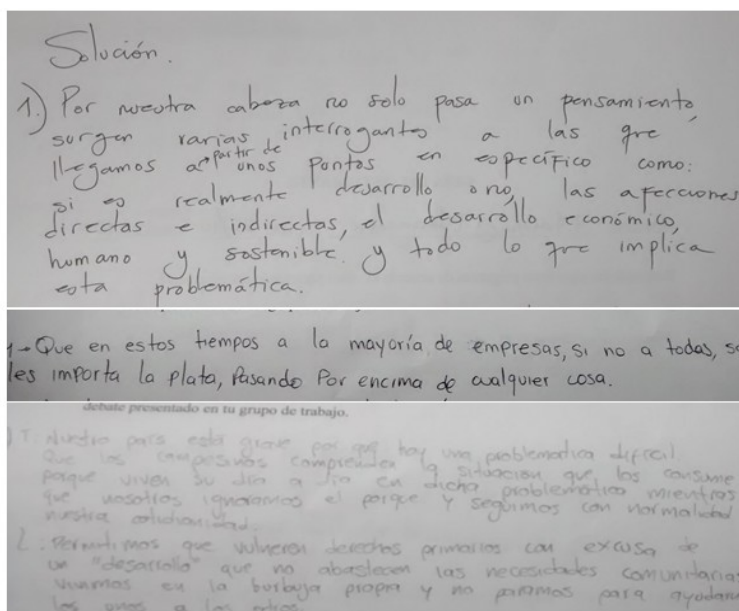 Solución.
1.) Por nuestra cabeza no solo pasa un pensamiento,
surgen varias interrogantes a las que
llegamos a partir de unos puntos en específico como:
si es realmente desarrollo o no, las afecciones
directas e indirectas, el desarrollo económico,
humano y sostenible y todo lo que implica
esta problemática.
1- Que en estos tiempos a la mayoría de empresas, si no a todas, so
les importa la plata, Pasando Por encima de cualquier cosa.
debate presentado en tu grupo de trabajo.
país está grave hay una problematica dificil
que los campesinos comprenden la situacion que los consume
porque viven su dia a dia en dicha problematica mientras
que nosotros ignoramos el porque y seguimos con normalidad
nuestra
2. Permitimos que vulneren derechos primarios con excusa de
un "desarrollo" que no abastecen las necesidades comunitarias
vivimos en la burbuja propia y no paramos para ayudarn
los unos a los otros.